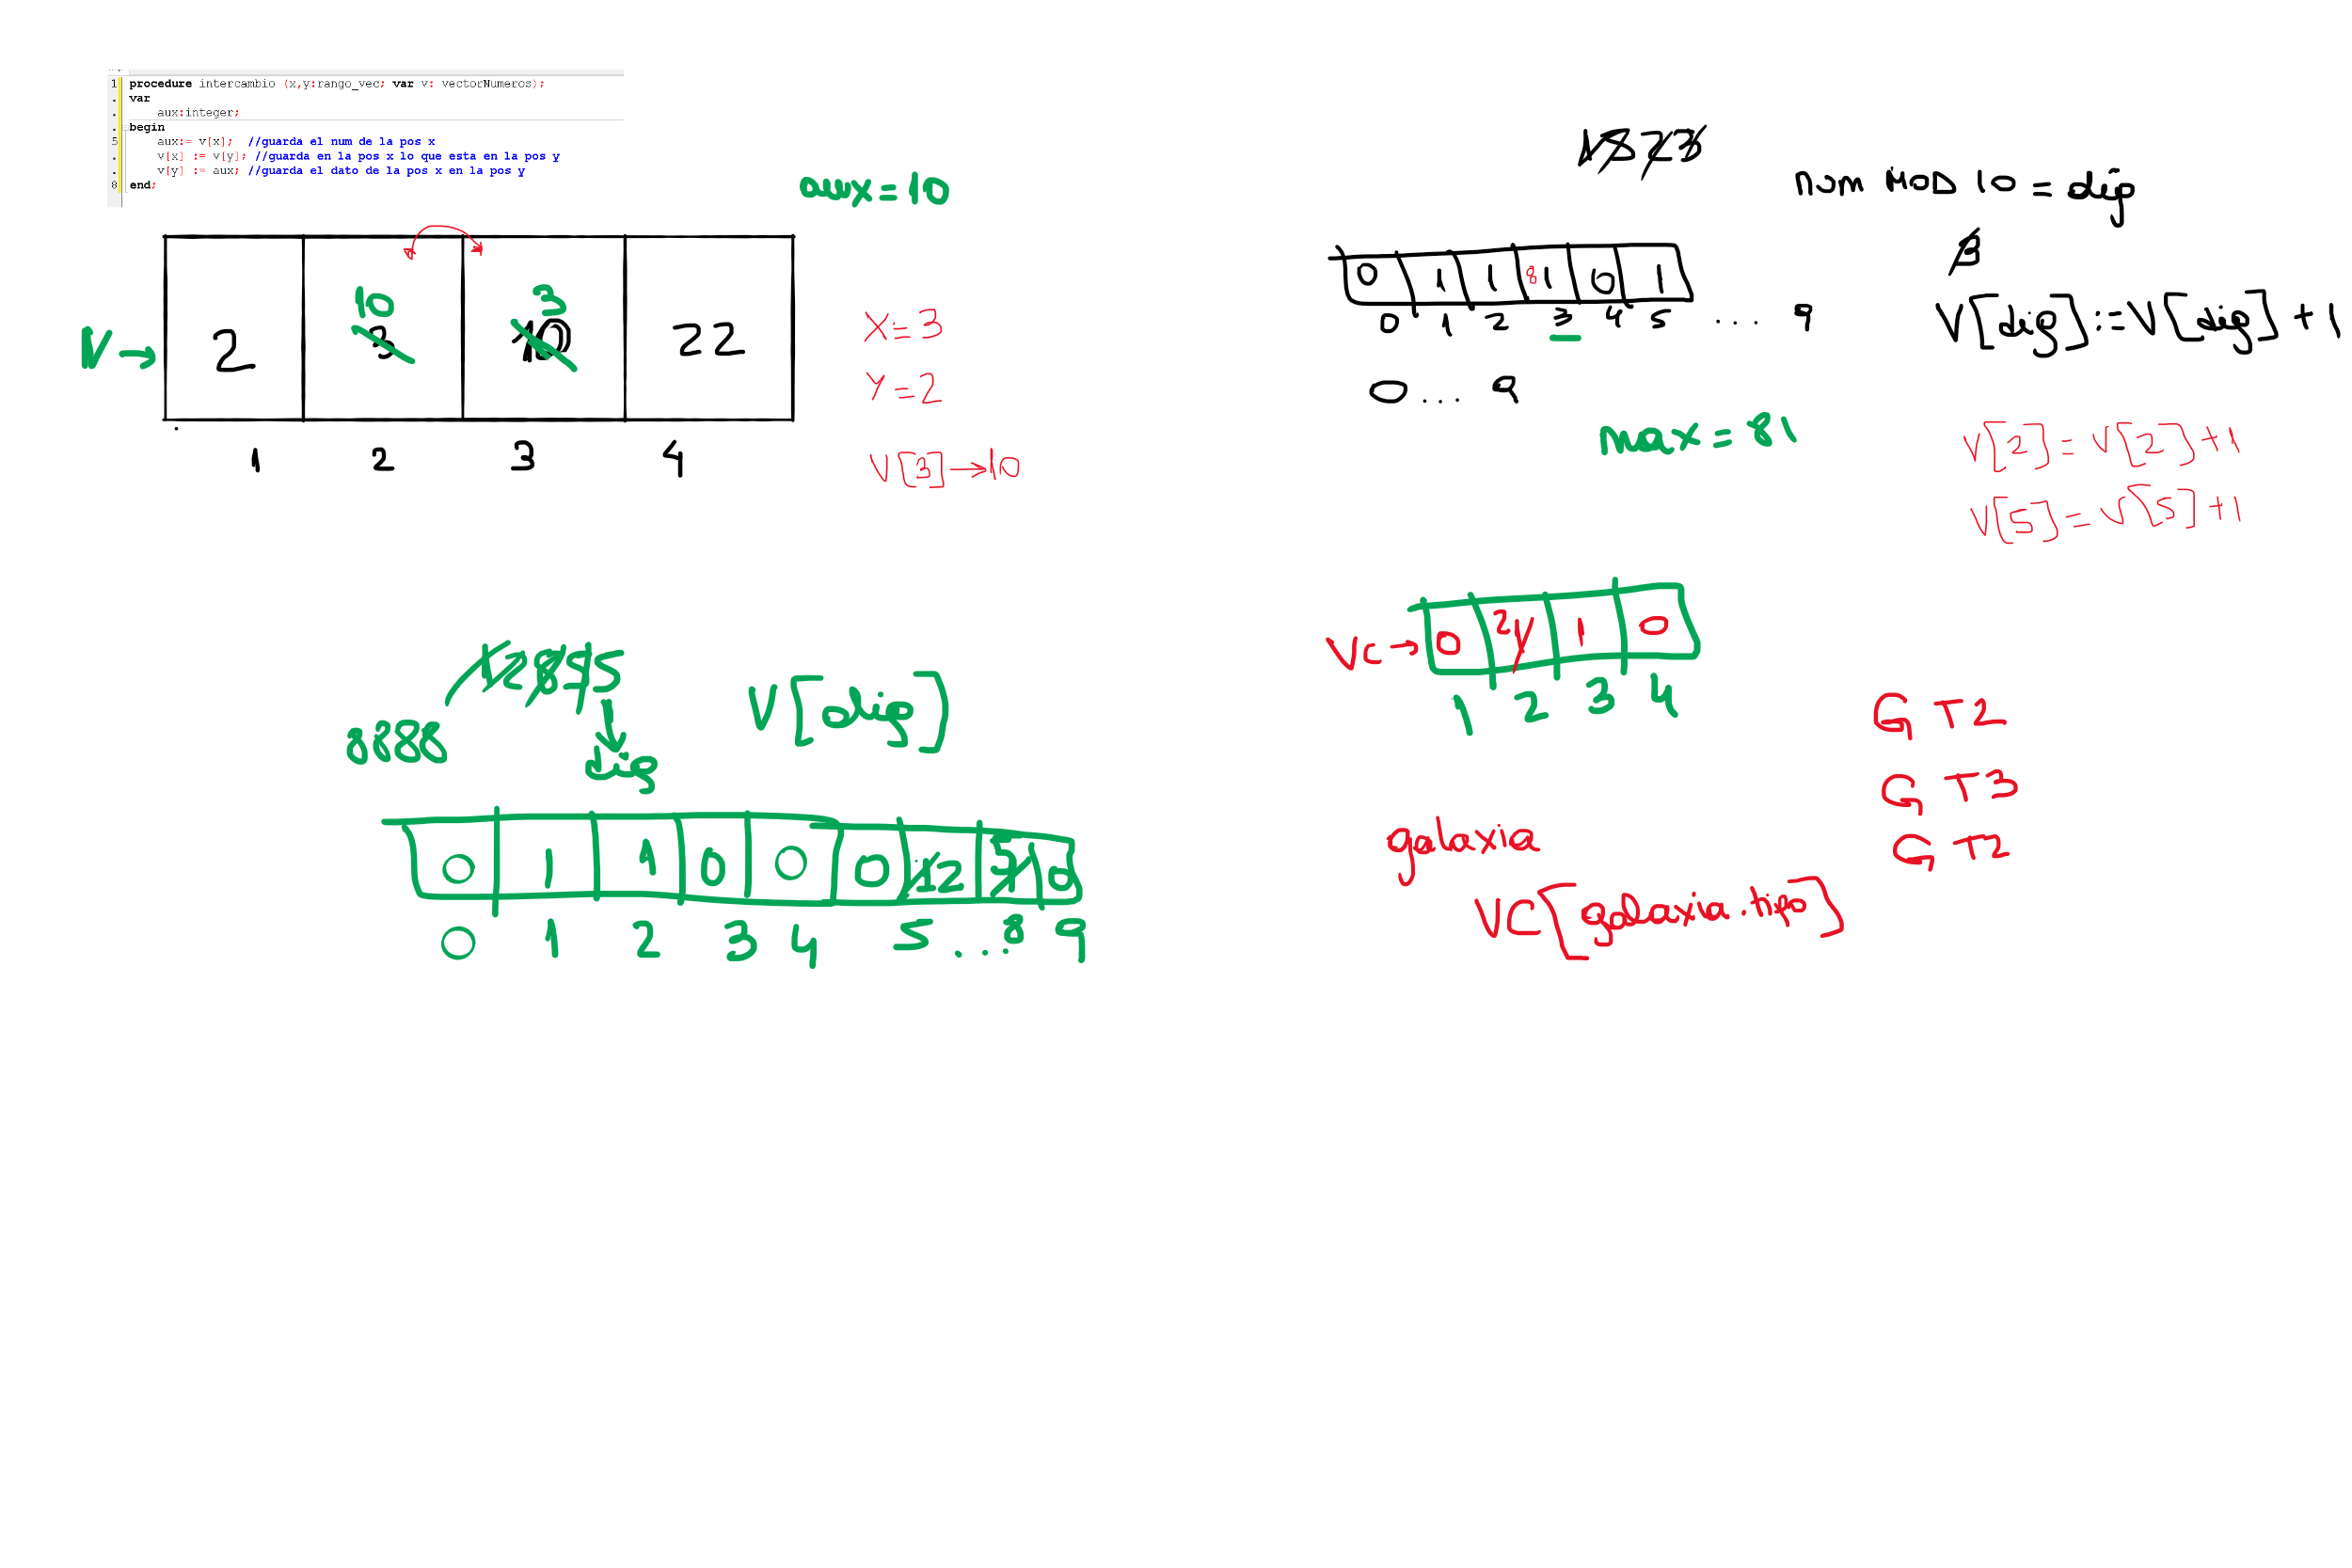 procedure intercambio (x,y:rango_vec; var v: vectorNumeros);
var
aux:integer;
begin
aux:= v[x]; //guarda el num de la pos x
v[x] := v[y]; //guarda en la pos x lo que esta en la pos y
v[y] := aux; //guarda el dato de la pos x en la pos y
end;
aux=10
10 3
V→ 2 3 10 22
1 2 3 4
X=3
Y=2
V[3]→10
1523
num MOD 10 = dig
0 1 1 8 1 0 1
0 1 2 3 4 5 ... 9
0... 9
V[dig]:=V[dig]+1
max=81
V[2]=V[2]+1
V[5]=V[5]+1
8888
V[dig]
dig
0 1 1 0 0 0 12 5 0
0 1 2 3 4 5 ... 8 9
VC→ 0 2 1 1 0
1 2 3 4
G T2
G T3
G T2
galaxia
VC[galaxia.tipo]